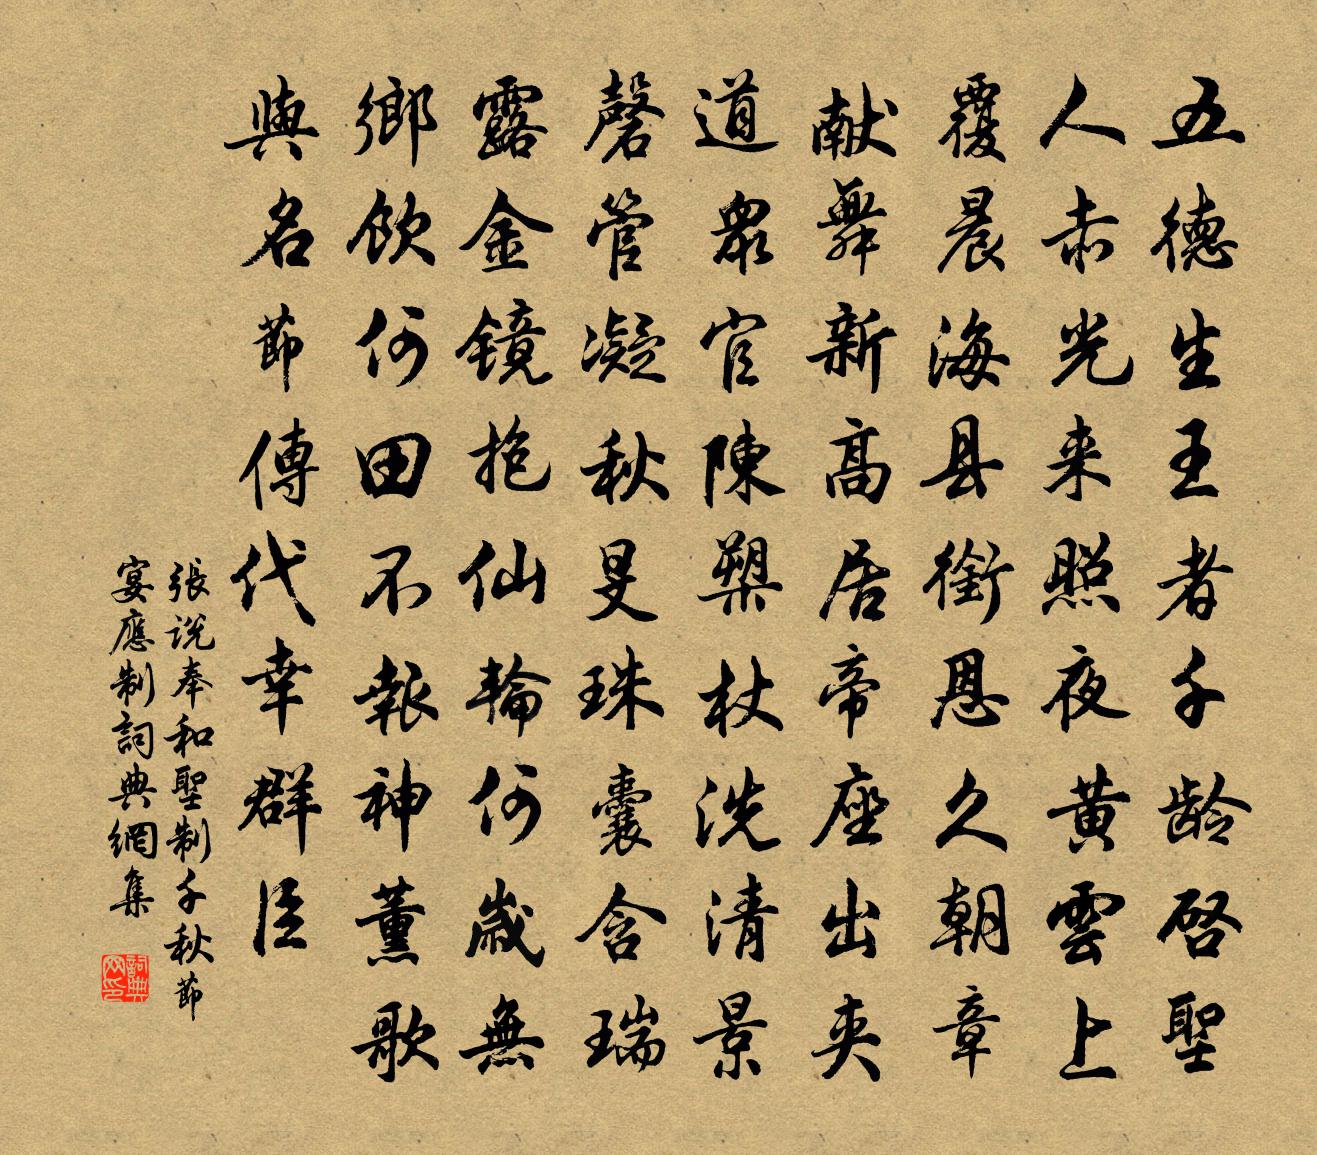 五德生王者千齡啓聖
人赤光来照夜黄雲上
覆晨海县銜恩久朝章
献舞新高居帝座出夹
道衆官陳槊杖洗清景
磬管凝秋旻珠囊含瑞
露金镜抱仙輪何歲無
鄉飲何田不報神薰歌
與名節傳代幸群臣
張说奉和聖制千秋節
宴應制詞典網集
詞典网印